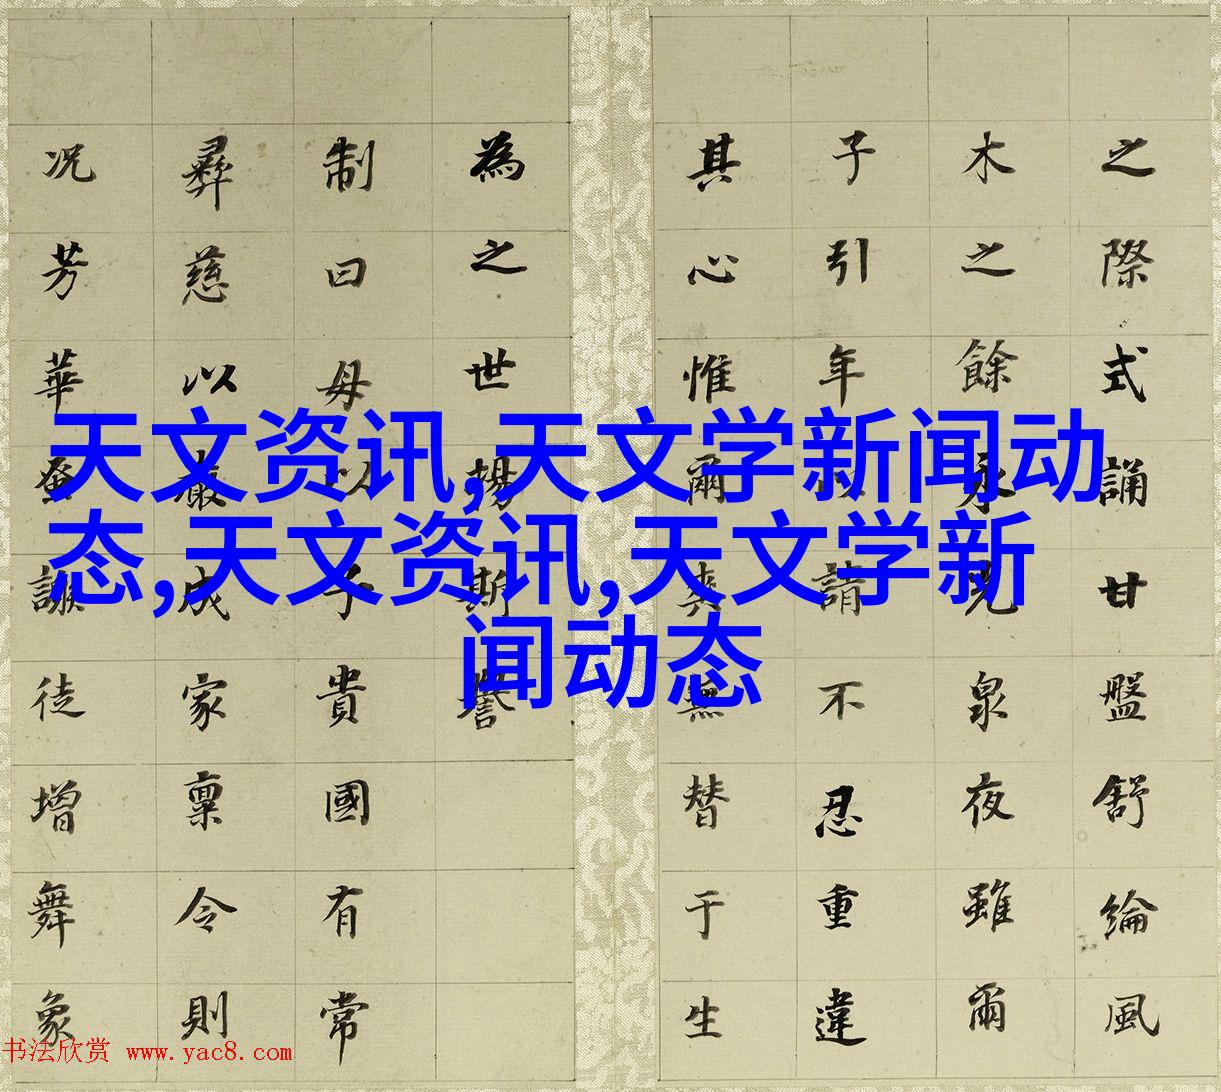 之際式誦甘盤舒綸風
木之餘永泉夜雖爾
子引年以請不忍重違
其心惟爾無替于生
為之世揚斯譽
制曰母以子貴國有常
彝慈以嚴成家稟令則
况芳華蚤徒增舞象
天文资讯,天文学新闻动
态,天文资讯,天文学新
闻动态
书法欣赏 www.yac8.com